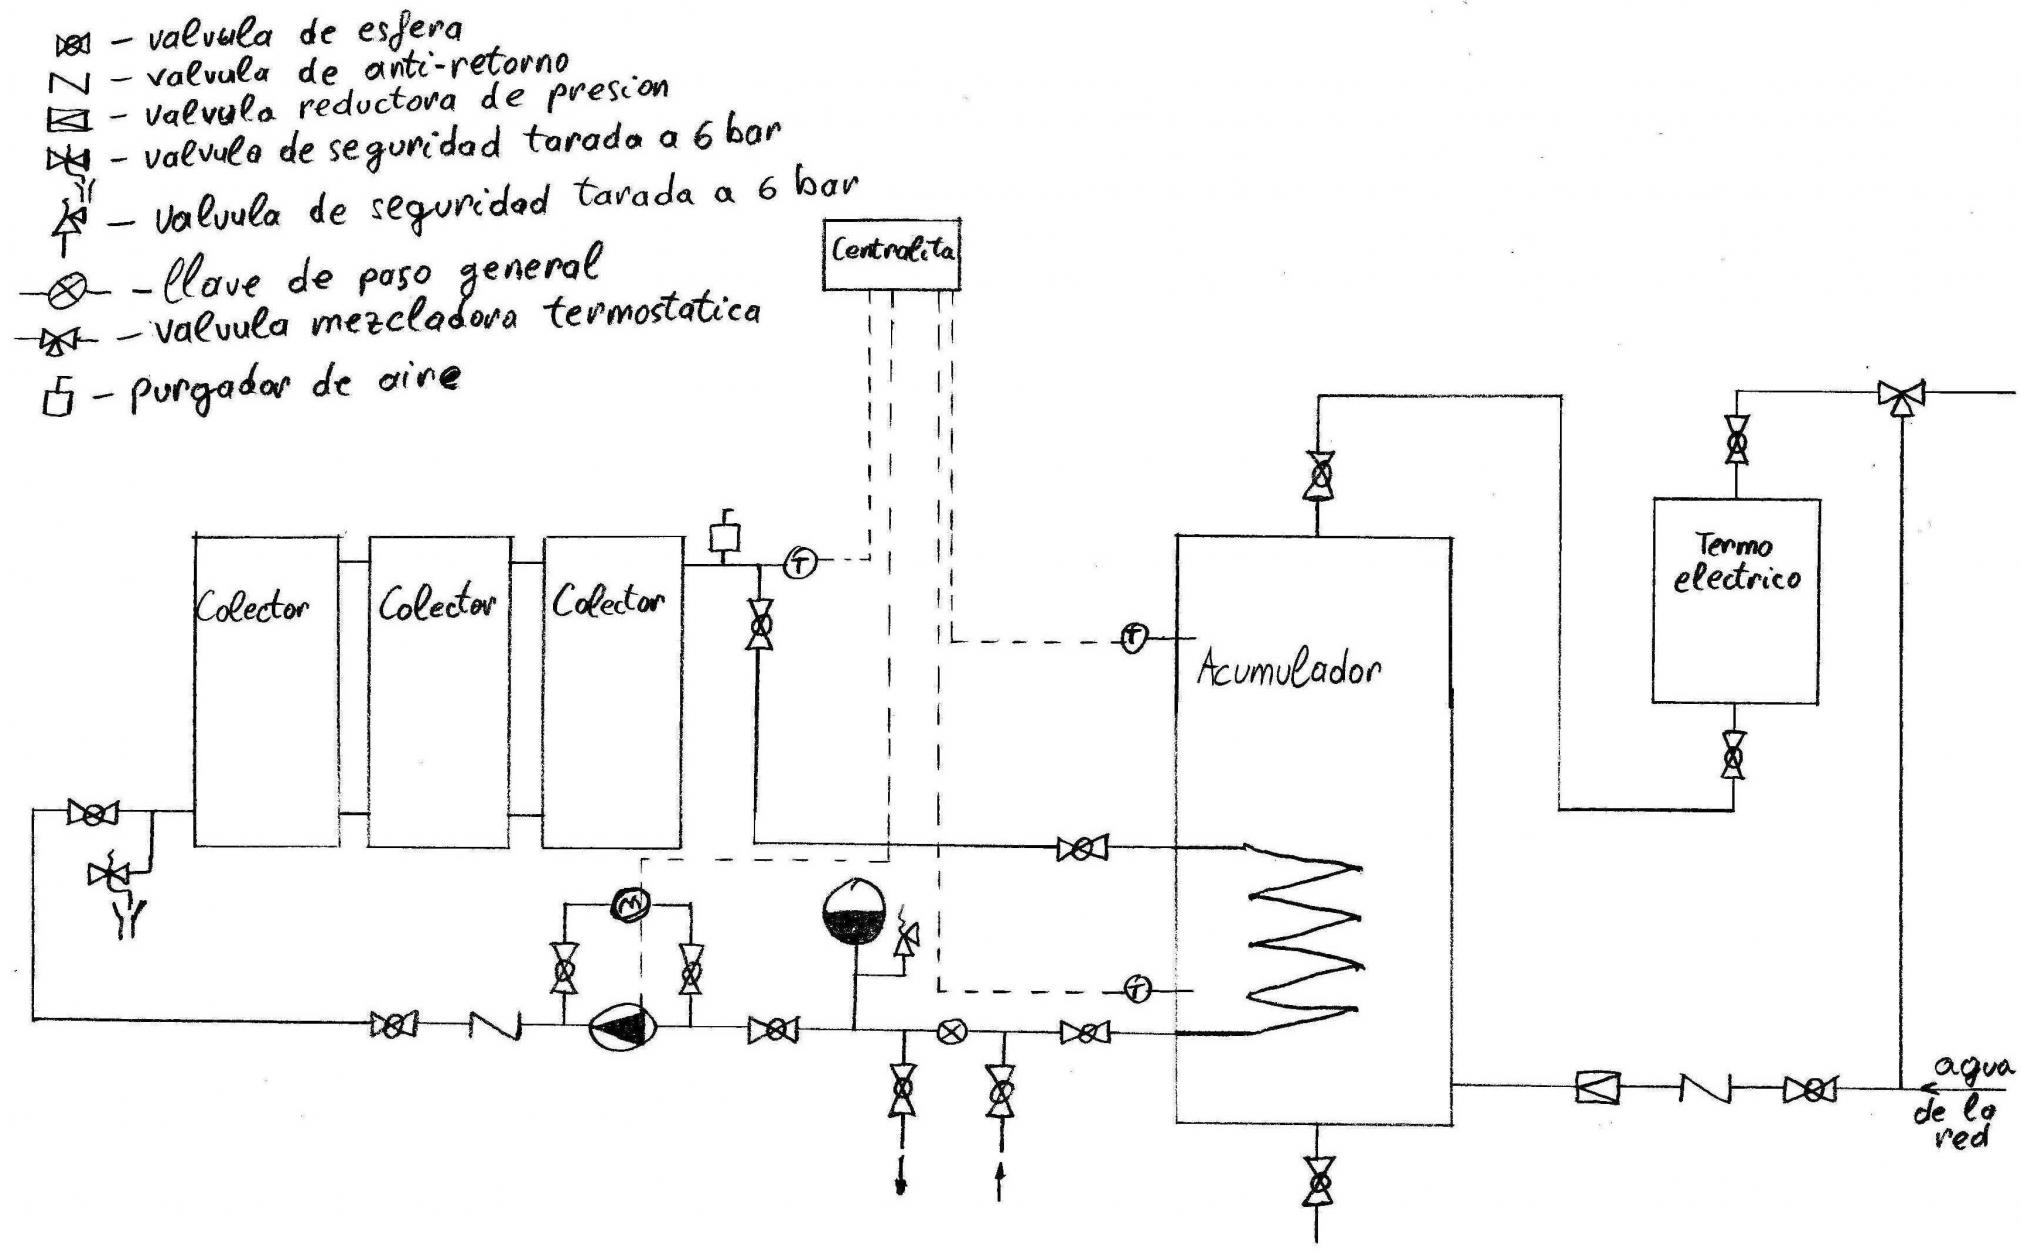 — valvula de esfera
— valvula de anti-retorno
— valvula reductora de presion
— valvula de seguridad tarada a 6 bar
— valvula de seguridad tarada a 6 bar
— llave de paso general
— valvula mezcladora termostatica
— purgador de aire
Centralita
Termo
electrico
T
Colector
Colector
Colector
T
Acumulador
M
T
agua
de la
red